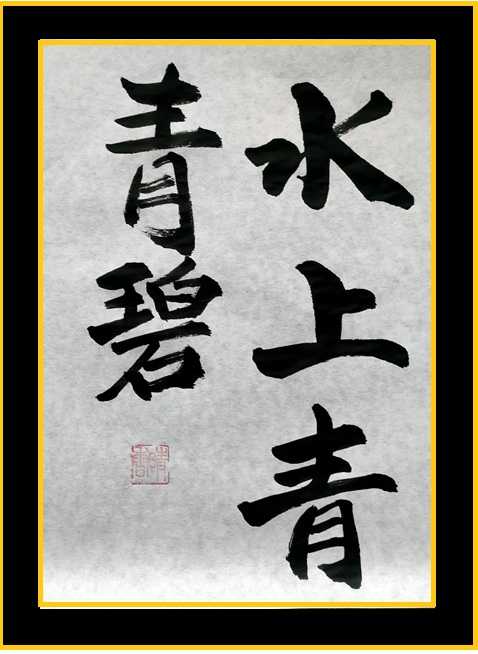 水上青
青碧